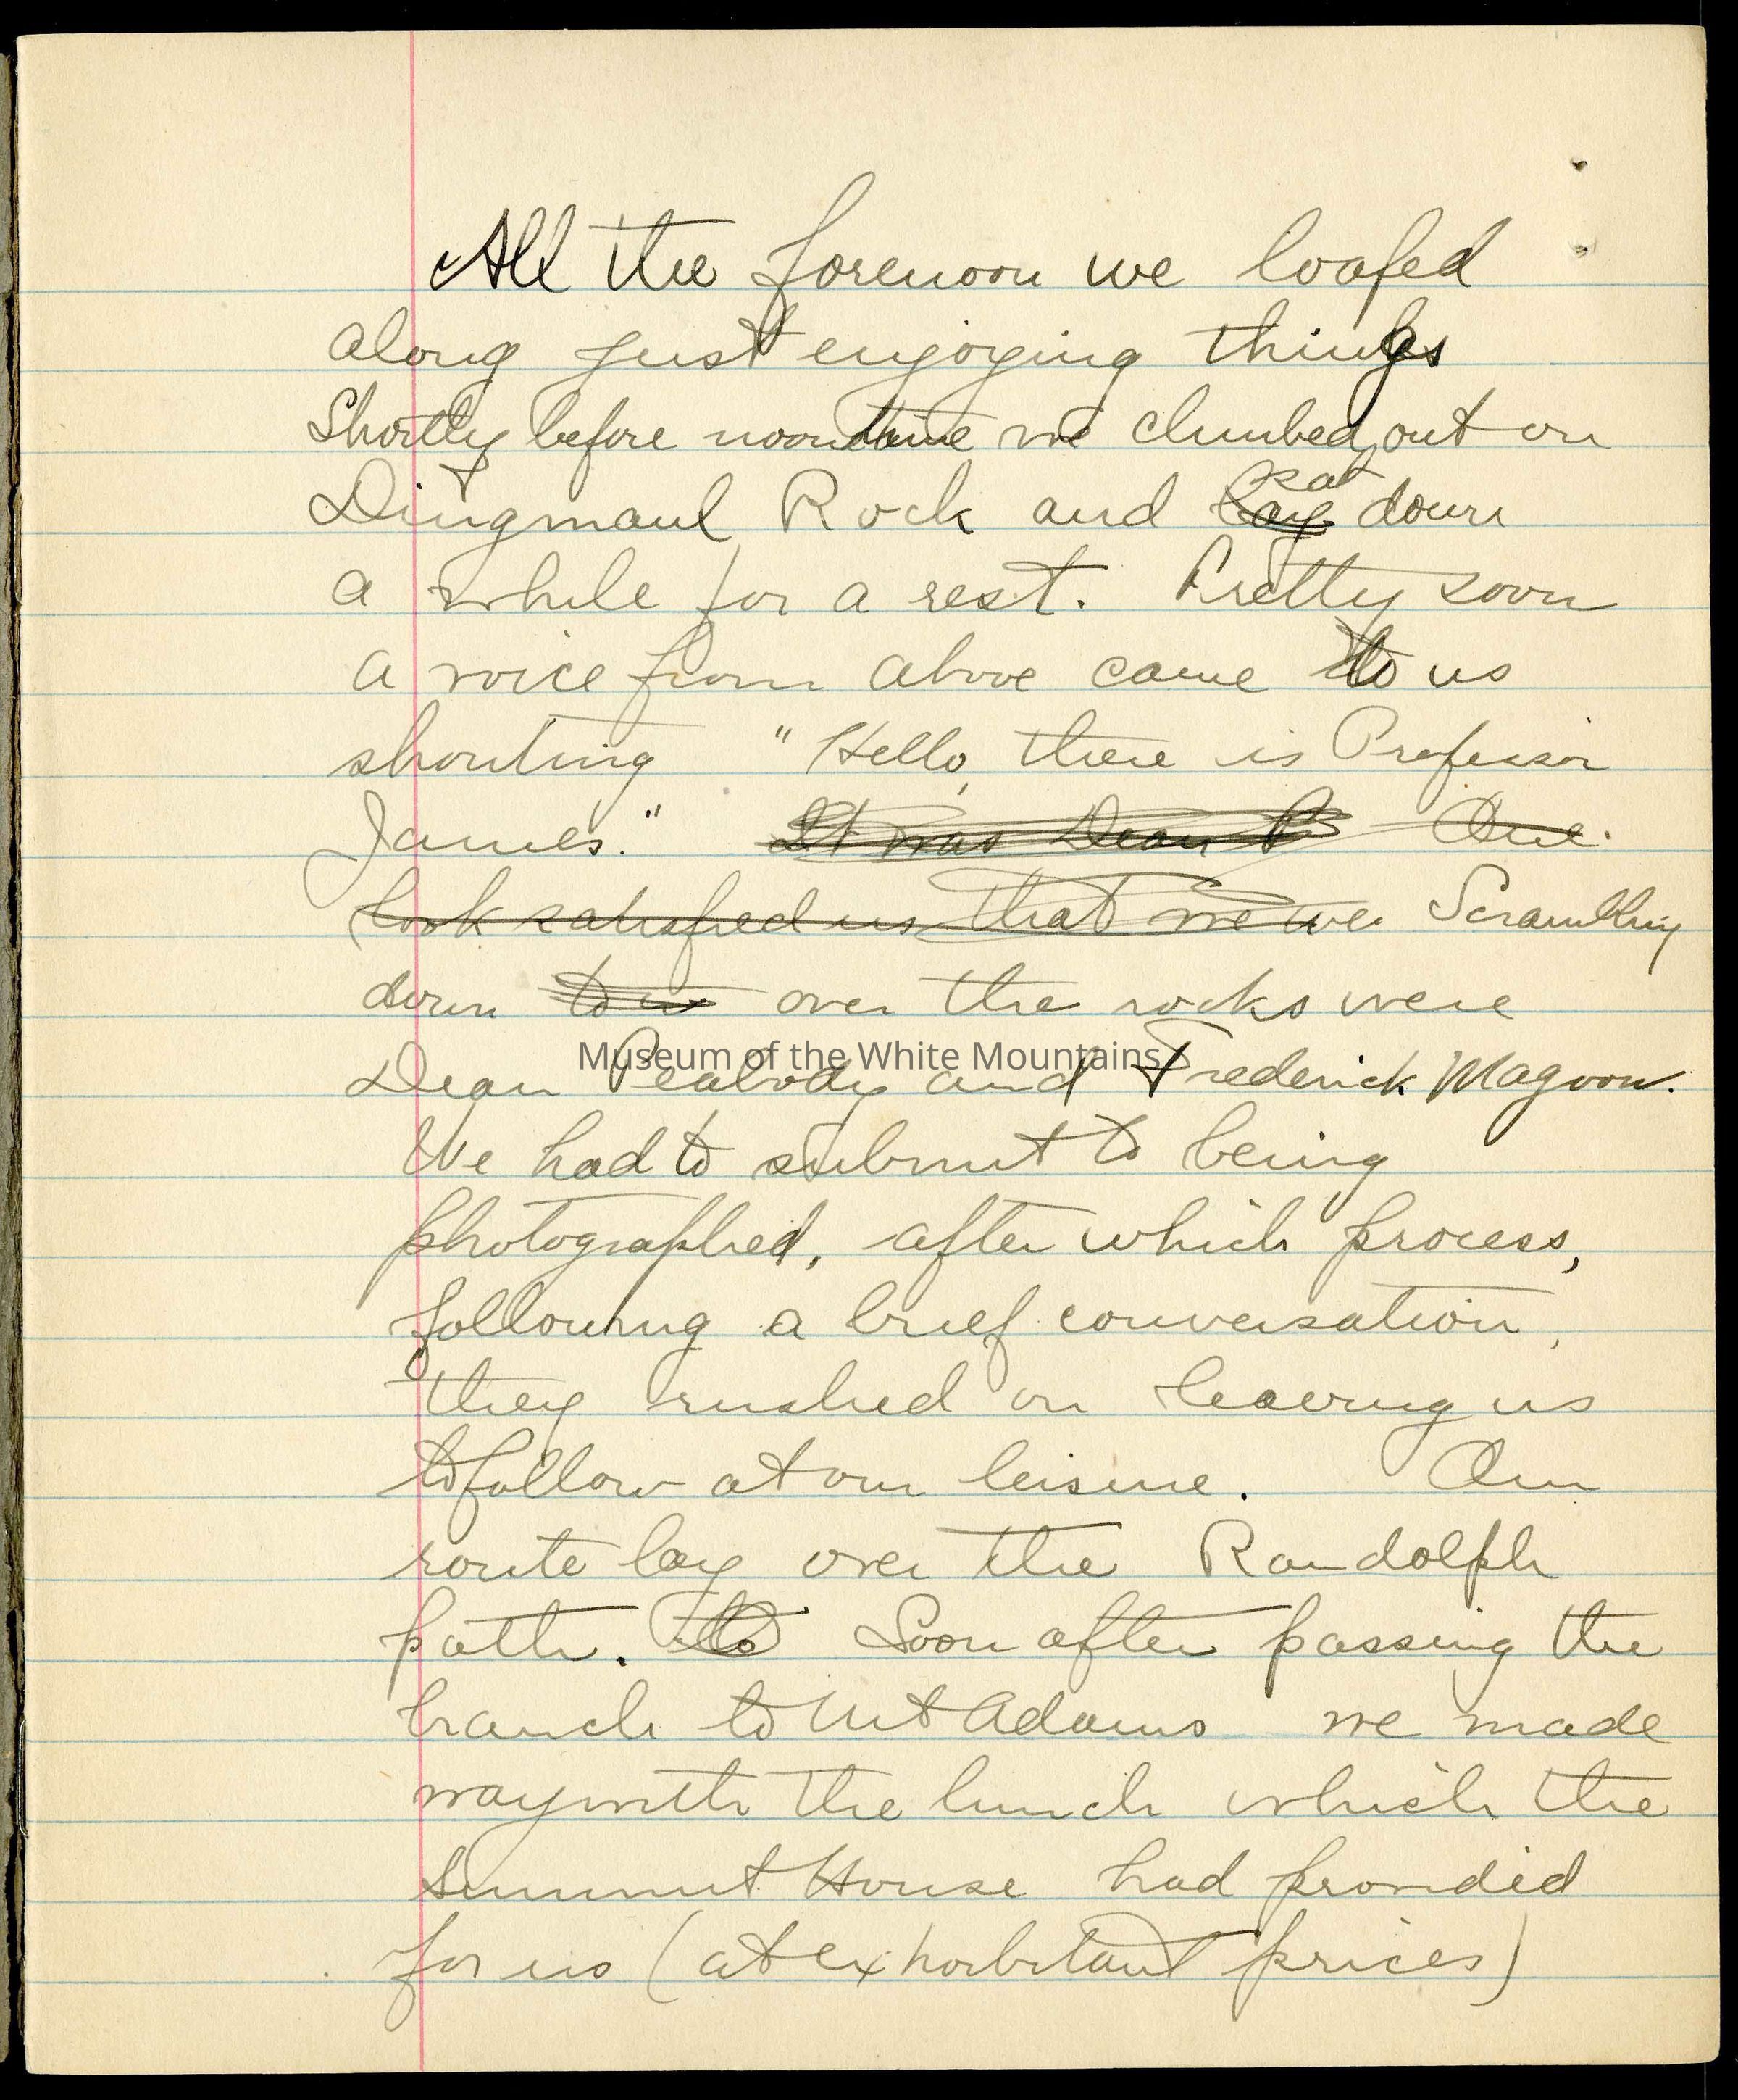 All the forenoon we loafed
along just enjoying things
Shortly before noontime we climbed out on
Dingmaul Rock and lay sat down
a while for a rest. Pretty soon
a voice from above came to us
shouting "Hello, there is Professor
James." It was Dean P One
look satisfied us that we we Scrambling
down to us over the rocks were
Museum of the White Mountains
Dean Peabody and Frederick Magoon.
We had to submit to being
photographed, after which process,
following a brief conversation,
they rushed on leaving us
to follow at our leisure. Our
route lay over the Randolph
path. to Soon after passing the
branch to Mt Adams we made
way with the lunch which the
Summit House had provided
for us (at exhorbitant prices)